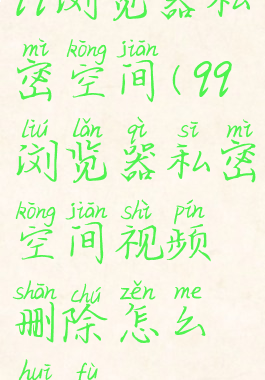 浏览器私
mì kōng jiān
密空间(99
liú lǎn qì sī mì
浏览器私密
kōng jiān shì pín
空间视频
shān chú zěn me
删除怎么
huī fù